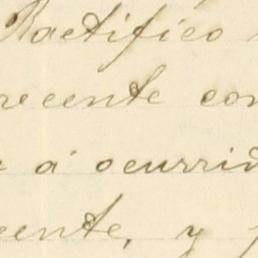 Ractifico
recente con
á ocurrid
cente, y